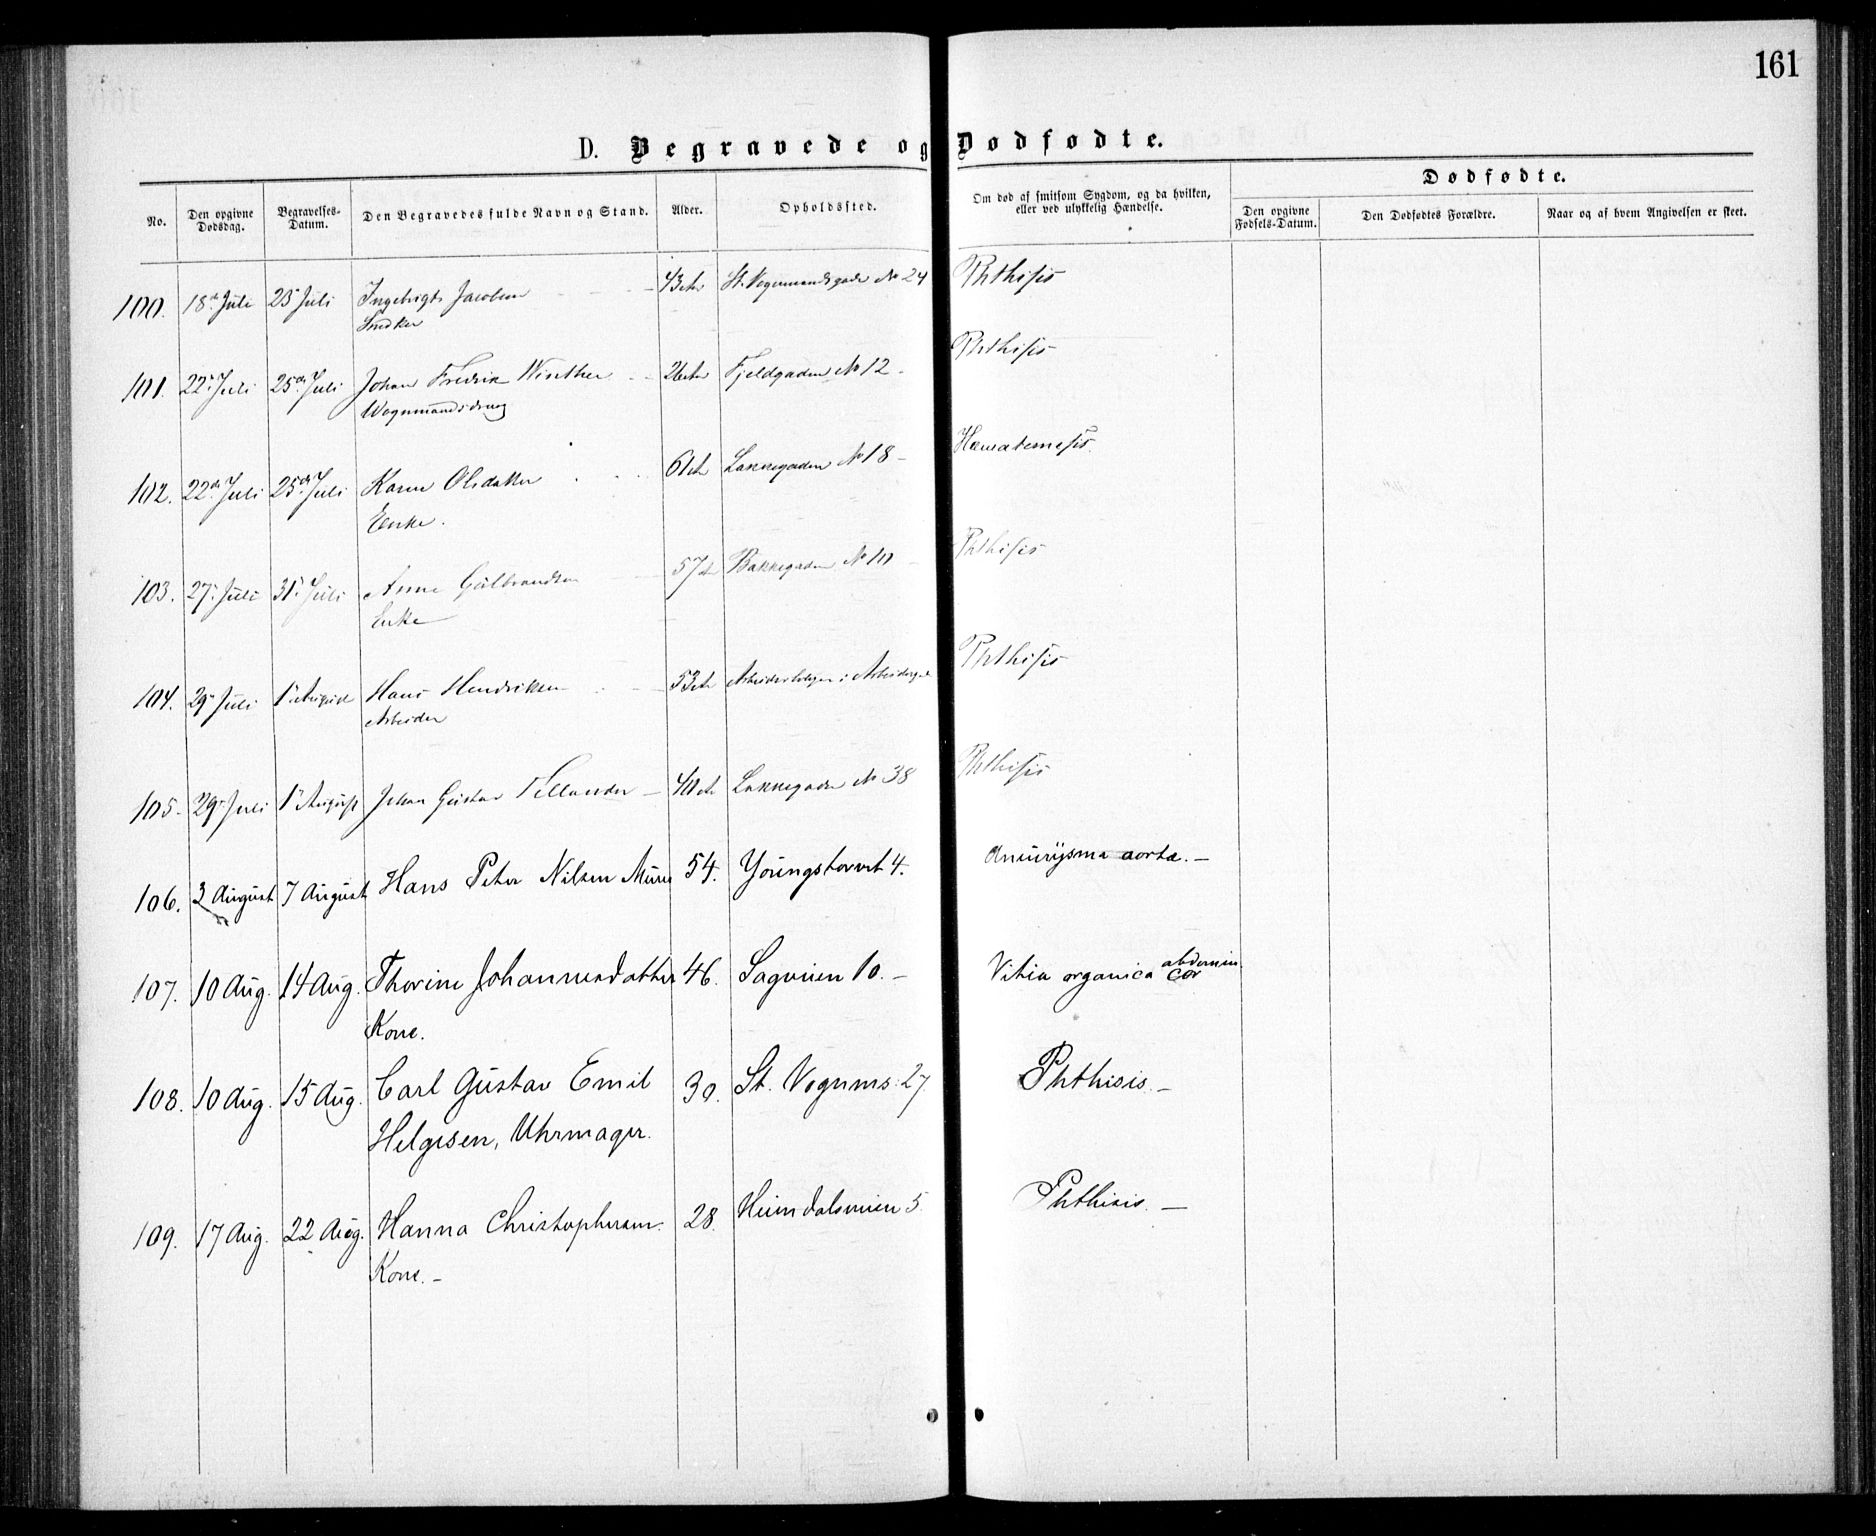 161
D. Begravede og Dødfødte.
No. Den opgivne Dødsdag. Begravelses-Datum. Den Begravedes fulde Navn og Stand. Alder. Opholdssted. Om død af smitsom Sygdom, og da hvilken, eller ved ulykkelig Hændelse. Dødfødte.
Den opgivne Fødsels-Datum. Den Dødfødtes Forældre. Naar og af hvem Angivelsen er skeet.
100. 18de Juli 25 Juli Ingebrigt Jacobsen 43 St. Vognmandsgade No 24 Phthisis
Snedker
101. 22 Juli 25de Juli Johan Fredrik Winther 26 Fjeldgaden No 12 Phthisis
Vognmandsdreng
102. 22de Juli 25de Juli Karen Olsdatter 61 Lakkegaden No 18 Hæmatemesis.
Enke.
103. 27 Juli 31 Juli Anne Gulbrandsen 57 Bakkegaden No 10 Phthisis
Enke
104. 29 Juli 1 August Hans Hendriksen 53 Phthisis
Arbeider
105. 29 Juli 1 August Johan Gustav Tillander 40 Lakkegaden No 38 Phthisis
106. 3 August 7 August Hans Peter Nilsen 54. Youngstorvet 4. Aneurysma aortæ. —
107. 10 Aug. 14 Aug. Thorine Johannesdatter 46. Sagveien 10. — Vitia organica abdomin. cor
Kone.
108. 10 Aug. 15 Aug. Carl Gustav Emil 30. St. Vognms: 27. Phthisis. —
Helgesen, Uhrmager.
109. 17 Aug. 22 Aug. Hanna Christophersen. 28. Heimdalsveien 5. Phthisis. —
Kone. —